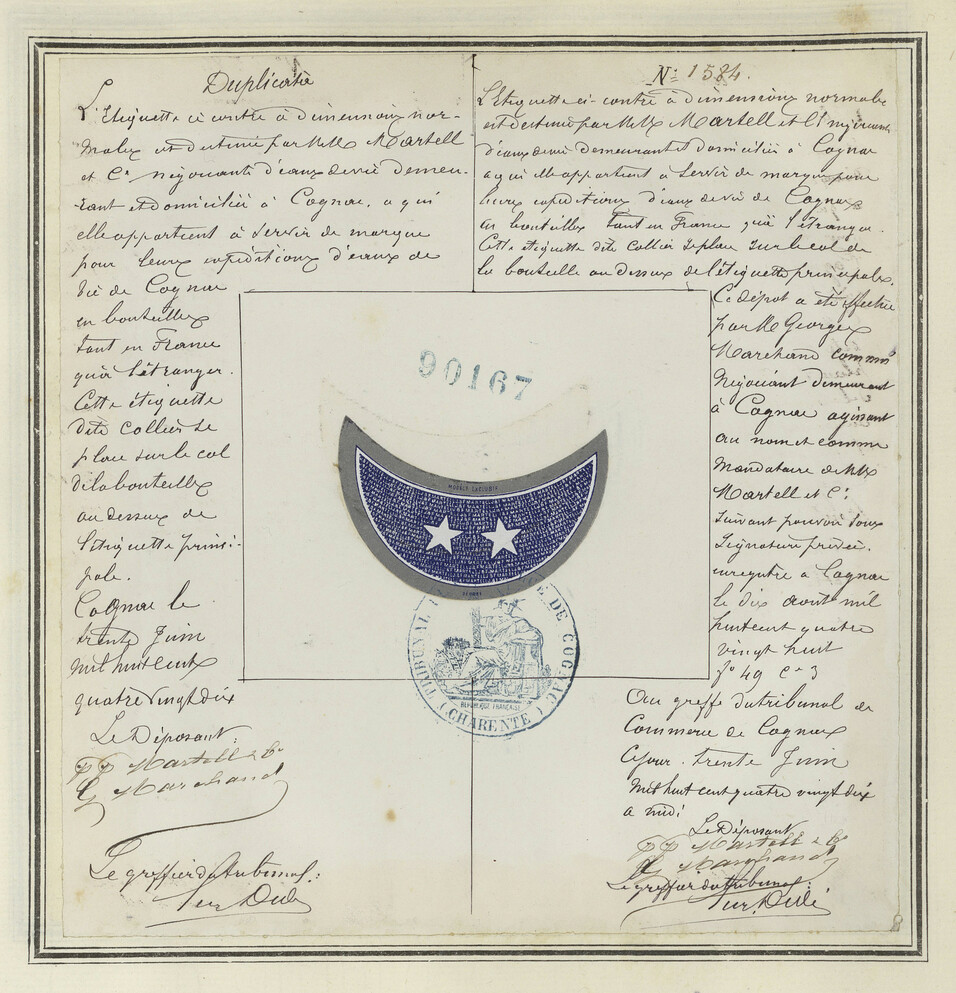 Duplicata
L'Etiquette ci contre à dimensions nor-
males est destinée par MMrs Martell
et Cie négociants d'eaux de vie demeu-
rant et domiciliés à Cognac, a qui
elle appartient à servir de marque
pour leurs expéditions d'eaux de
vie de Cognac
en bouteilles
tant en France
qu'à l'étranger.
Cette étiquette
dite collier se
place sur le col
de la bouteille
au dessus de
l'étiquette princi-
pale.
Cognac le
trente Juin
mil huit cent
quatre vingt dix
Le Déposant:
PP Martell & Co
G Marchand
Le greffier du tribunal:
No: 1584.
L'Etiquette ci-contre à dimensions normales
est destinée par MMrs Martell et Cie négociants
d'eaux de vie demeurant et domiciliés à Cognac
a qui elle appartient à servir de marque pour
leurs expéditions d'eaux de vie de Cognac
en bouteilles tant en France qu'à l'étranger.
Cette étiquette dite collier se place sur le col de
la bouteille au dessus de l'étiquette principale.
Ce dépôt a été effectué
par M Georges
Marchand commis
négociant demeurant
à Cognac agissant
au nom et comme
mandataire de MMrs
Martell et Cie
suivant pouvoir sous
signature privée.
enregistré à Cognac
le dix août mil
huit cent quatre
vingt huit
fo 49 ce 3
Au greffe du tribunal de
Commerce de Cognac
Ce jour. trente Juin
mil huit cent quatre vingt dix
a midi
Le Déposant
PP Martell & Co
G Marchand
Le greffier du tribunal:
90167
MODÈLE EXCLUSIF
DÉPOSÉ
TRIBUNAL DE COMMERCE DE COGNAC
RÉPUBLIQUE FRANÇAISE
(CHARENTE)